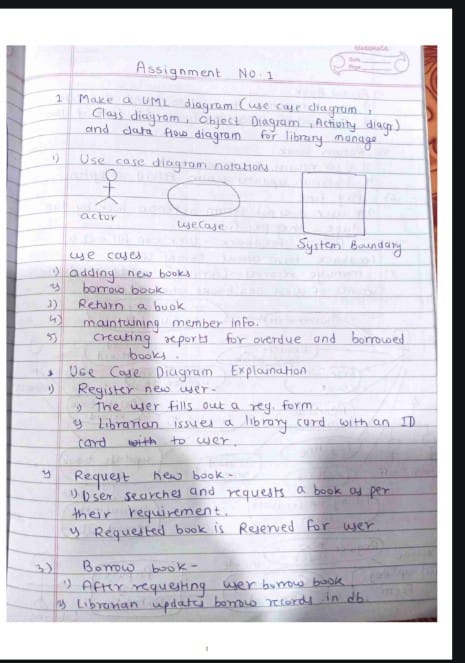 classmate
Date
Page
Assignment No. 1
1 Make a UML diagram (use case diagram,
Class diagram, Object Diagram, Activity diagr)
and data flow diagram for library manage
1) Use case diagram notations
actor
usecase
System Boundary
use cases
1) adding new books
2) borrow book
3) Return a book
4) maintaining member info.
5) creating reports for overdue and borrowed
books.
Use Case Diagram Explaination
1) Register new user-
1) The user fills out a reg. form.
2) Librarian issues a library card with an ID
card with to user.
2) Request new book-
1) User searches and requests a book as per
their requirement.
2) Requested book is Reserved for user
3) Borrow book-
1) After requesting user borrow book
2) Librarian updates borrow records in db.
1